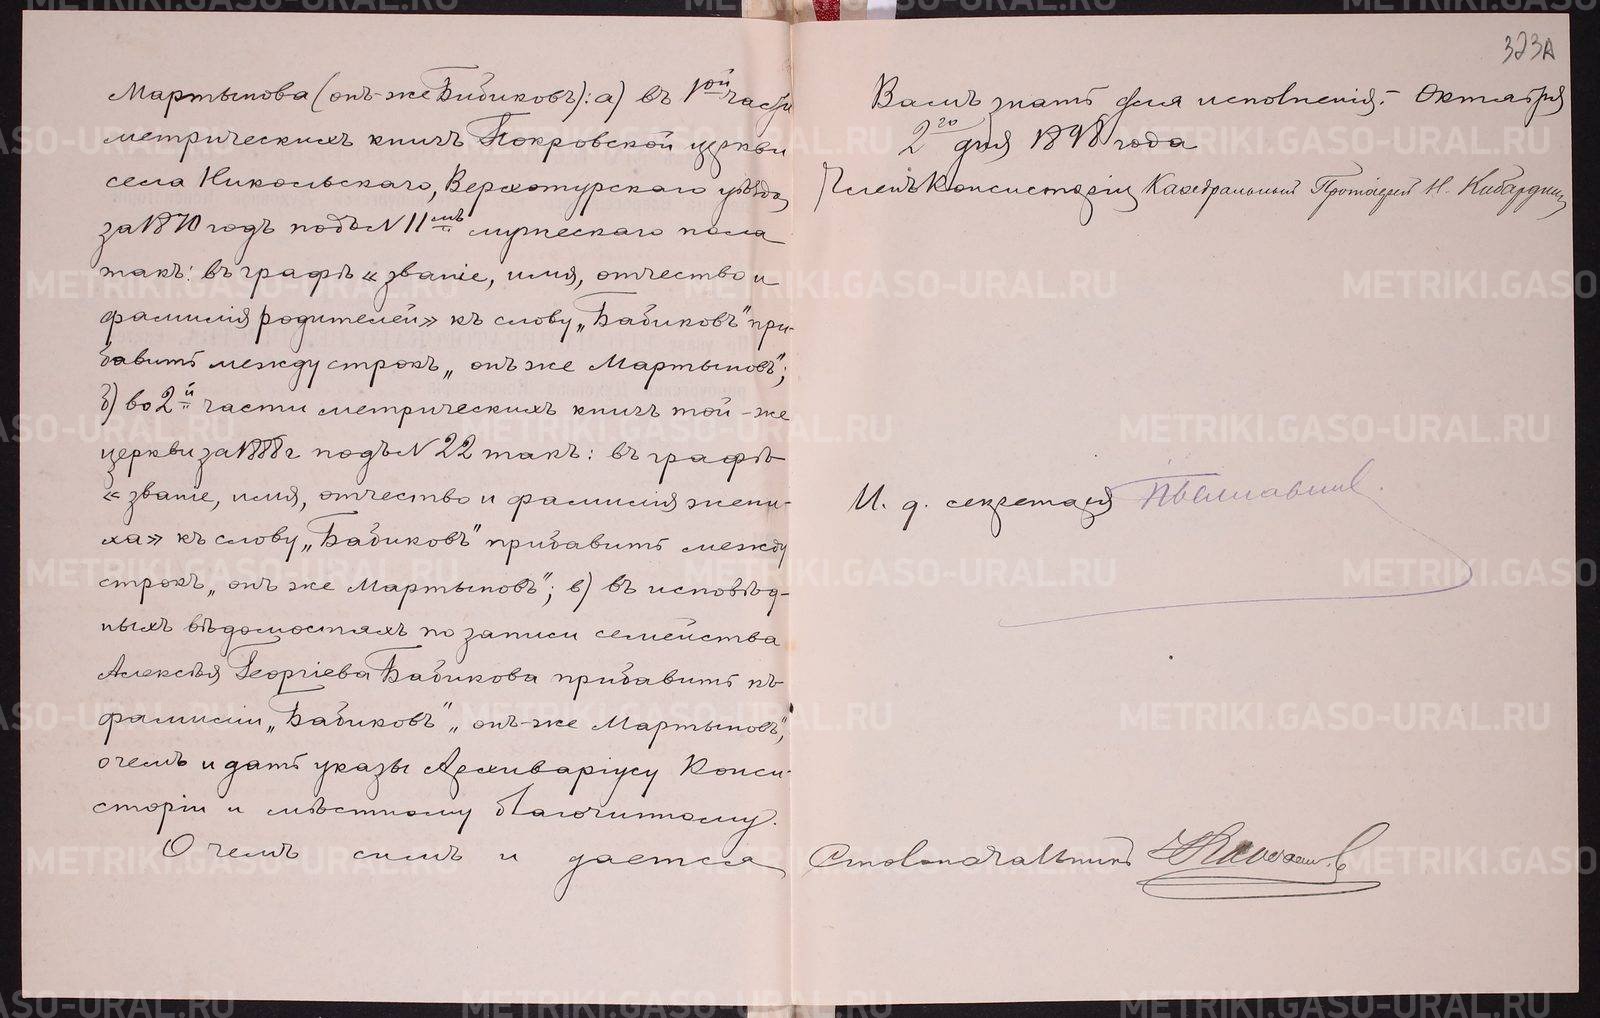 Мартынова (онъ-же Бабиковъ): а) въ 1ой части
метрическихъ книгъ Покровской церкви
села Никольскаго, Верхотурскаго уѣзда,
за 1870 годъ подъ № 11мъ мужескаго пола
такъ: въ графѣ «званіе, имя, отчество и
фамилія родителей» къ слову „Бабиковъ" при-
бавить между строкъ „онъ же Мартыновъ";
б) во 2й части метрическихъ книгъ той-же
церкви за 1888 г подъ № 22 такъ: въ графѣ
«званіе, имя, отчество и фамилія жени-
ха» къ слову „Бабиковъ" прибавить между
строкъ „онъ же Мартыновъ"; в) въ исповѣд-
ныхъ вѣдомостяхъ по записи семейства
Алексѣя Георгіева Бабикова прибавить къ
фамиліи „Бабиковъ" „онъ-же Мартыновъ",
о чемъ и дать указы Архиваріусу Конси-
сторіи и мѣстному благочинному.
О чемъ симъ и дается
323А
Вамъ знать для исполненія. Октября
2го дня 1898 года
Членъ Консисторіи Каѳедральный Протоіерей Н. Кибардинъ
И. д. секретаря
Столоначальникъ
METRIKI.GASO-URAL.RU